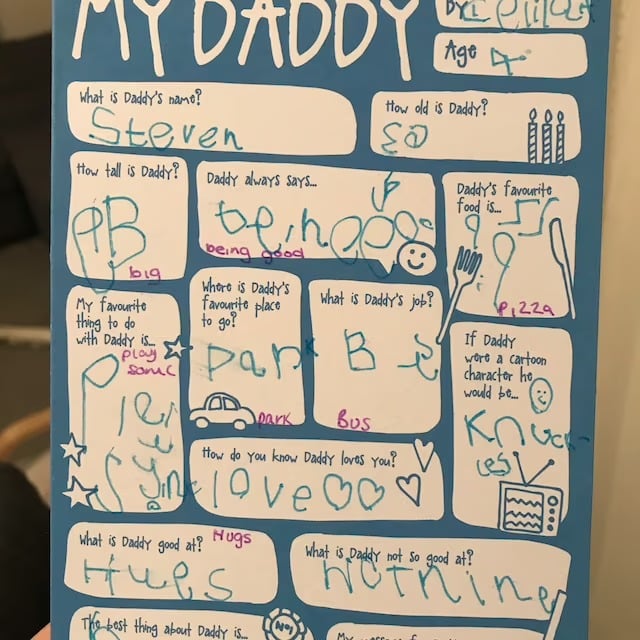 MY DADDY
BY
Age 4
What is Daddy's name?
Steven
How old is Daddy?
How tall is Daddy?
big
Daddy always says...
being good
Daddy's favourite
food is...
Pizza
My favourite
thing to do
with Daddy is...
play
sonic
Where is Daddy's
favourite place
to go?
park
park
What is Daddy's job?
B
Bus
If Daddy
were a cartoon
character he
would be...
Knuck-
les
How do you know Daddy loves you?
love
What is Daddy good at?
Hugs
Hugs
What is Daddy not so good at?
Nothing
The best thing about Daddy is...
No1